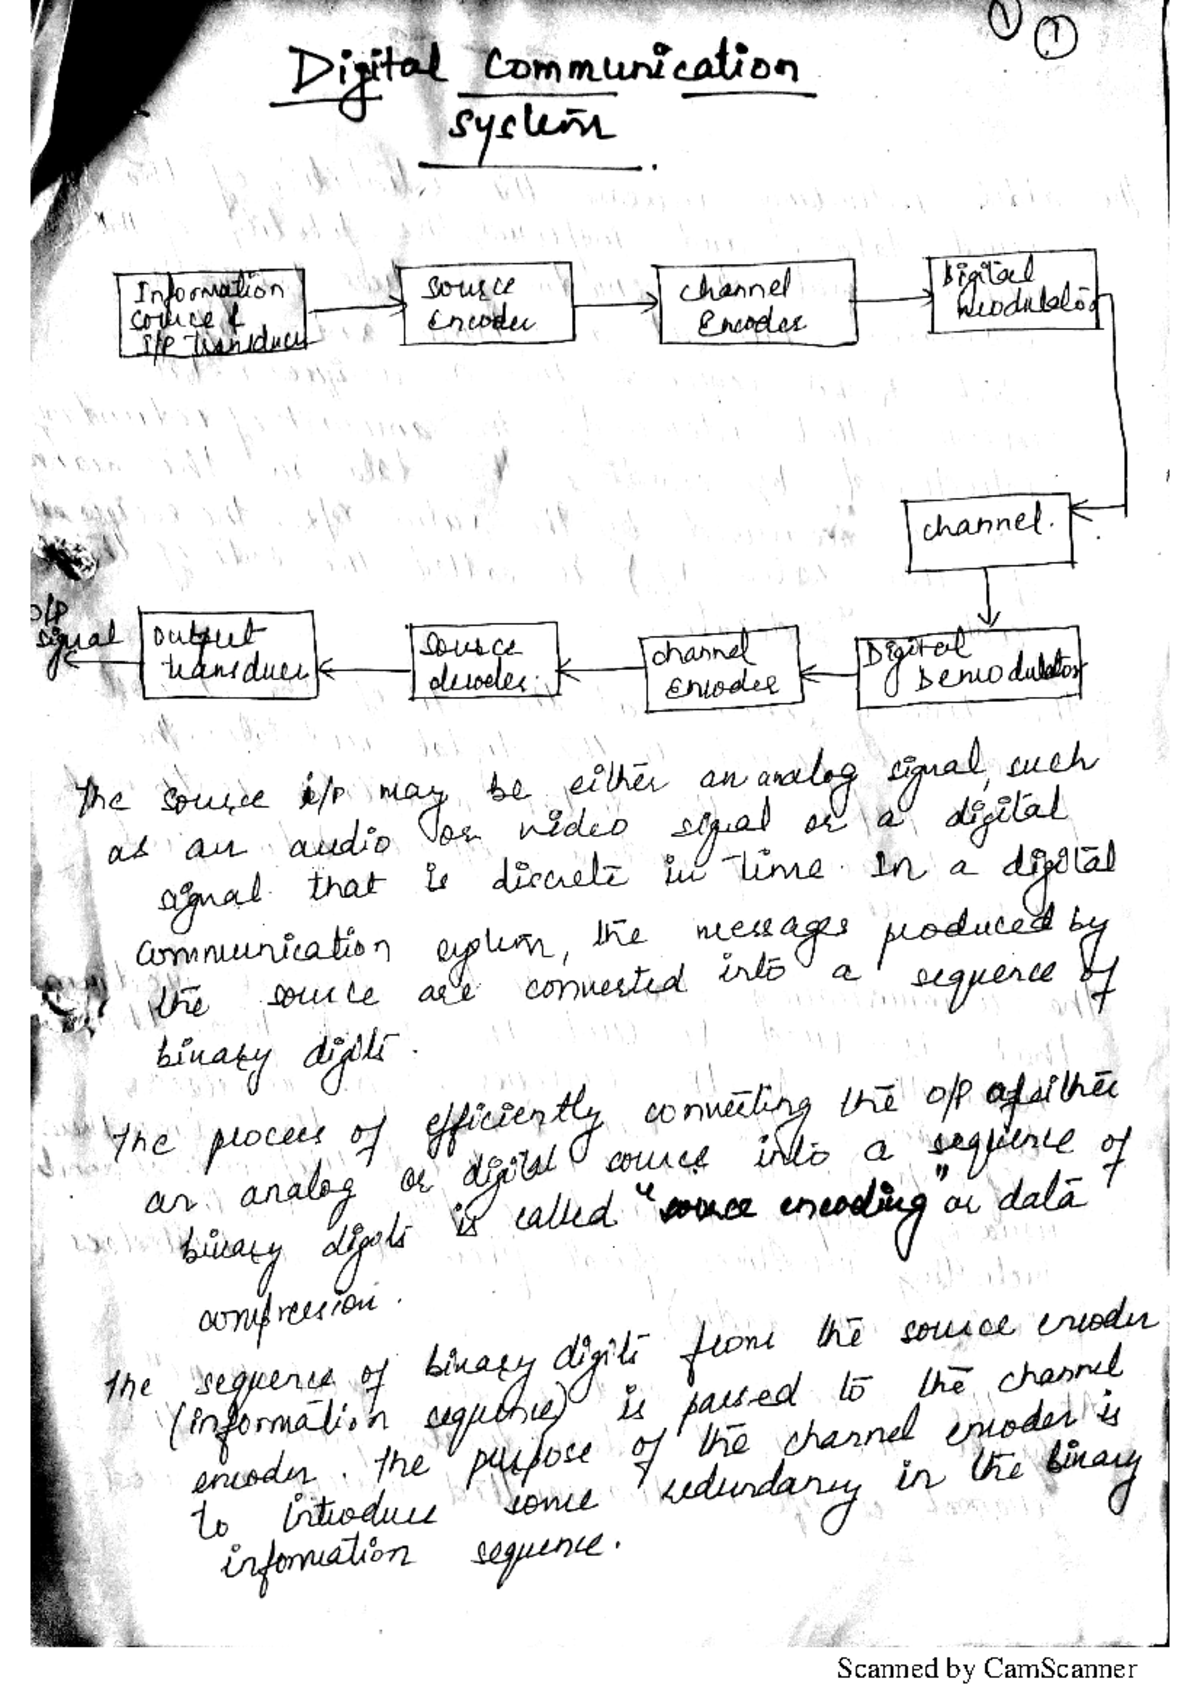 1 1
Digital Communication
System.
Information
source &
I/P transducer
source
Encoder
channel
Encoder
Digital
Modulator
channel.
O/P
signal
output
transducer
source
decoder.
channel
Encoder
Digital
Demodulator
The source i/p may be either an analog signal, such
as an audio or video signal or a digital
signal that is discrete in time. In a digital
communication system, the messages produced by
the source are converted into a sequence of
binary digits.
The process of efficiently converting the O/P of either
an analog or digital source into a sequence of
binary digits is called "source encoding" or data
compression.
The sequence of binary digits from the source encoder
(information sequence) is passed to the channel
encoder. The purpose of the channel encoder is
to introduce some redundancy in the binary
information sequence.
Scanned by CamScanner